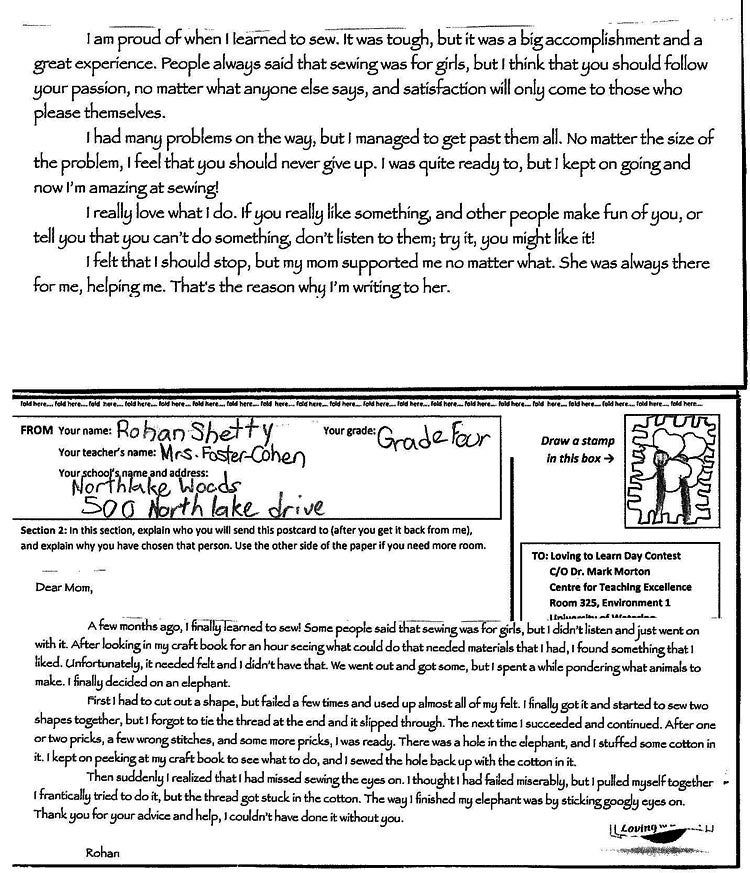 I am proud of when I learned to sew. It was tough, but it was a big accomplishment and a
great experience. People always said that sewing was for girls, but I think that you should follow
your passion, no matter what anyone else says, and satisfaction will only come to those who
please themselves.
I had many problems on the way, but I managed to get past them all. No matter the size of
the problem, I feel that you should never give up. I was quite ready to, but I kept on going and
now I'm amazing at sewing!
I really love what I do. If you really like something, and other people make fun of you, or
tell you that you can't do something, don't listen to them; try it, you might like it!
I felt that I should stop, but my mom supported me no matter what. She was always there
for me, helping me. That's the reason why I'm writing to her.
fold here.... fold here.... fold here.... fold here.... fold here.... fold here.... fold here.... fold here.... fold here.... fold here.... fold here.... fold here.... fold here.... fold here.... fold here.... fold here.... fold here.... fold here.... fold here....
FROM Your name: Rohan Shetty Your grade: Grade Four
Your teacher's name: Mrs. Foster-Cohen
Your school's name and address:
Northlake Woods
500 North lake drive
Draw a stamp
in this box →
Section 2: In this section, explain who you will send this postcard to (after you get it back from me),
and explain why you have chosen that person. Use the other side of the paper if you need more room.
TO: Loving to Learn Day Contest
C/O Dr. Mark Morton
Centre for Teaching Excellence
Room 325, Environment 1
Dear Mom,
A few months ago, I finally learned to sew! Some people said that sewing was for girls, but I didn't listen and just went on
with it. After looking in my craft book for an hour seeing what could do that needed materials that I had, I found something that I
liked. Unfortunately, it needed felt and I didn't have that. We went out and got some, but I spent a while pondering what animals to
make. I finally decided on an elephant.
First I had to cut out a shape, but failed a few times and used up almost all of my felt. I finally got it and started to sew two
shapes together, but I forgot to tie the thread at the end and it slipped through. The next time I succeeded and continued. After one
or two pricks, a few wrong stitches, and some more pricks, I was ready. There was a hole in the elephant, and I stuffed some cotton in
it. I kept on peeking at my craft book to see what to do, and I sewed the hole back up with the cotton in it.
Then suddenly I realized that I had missed sewing the eyes on. I thought I had failed miserably, but I pulled myself together
I frantically tried to do it, but the thread got stuck in the cotton. The way I finished my elephant was by sticking googly eyes on.
Thank you for your advice and help, I couldn't have done it without you.
Loving
Rohan